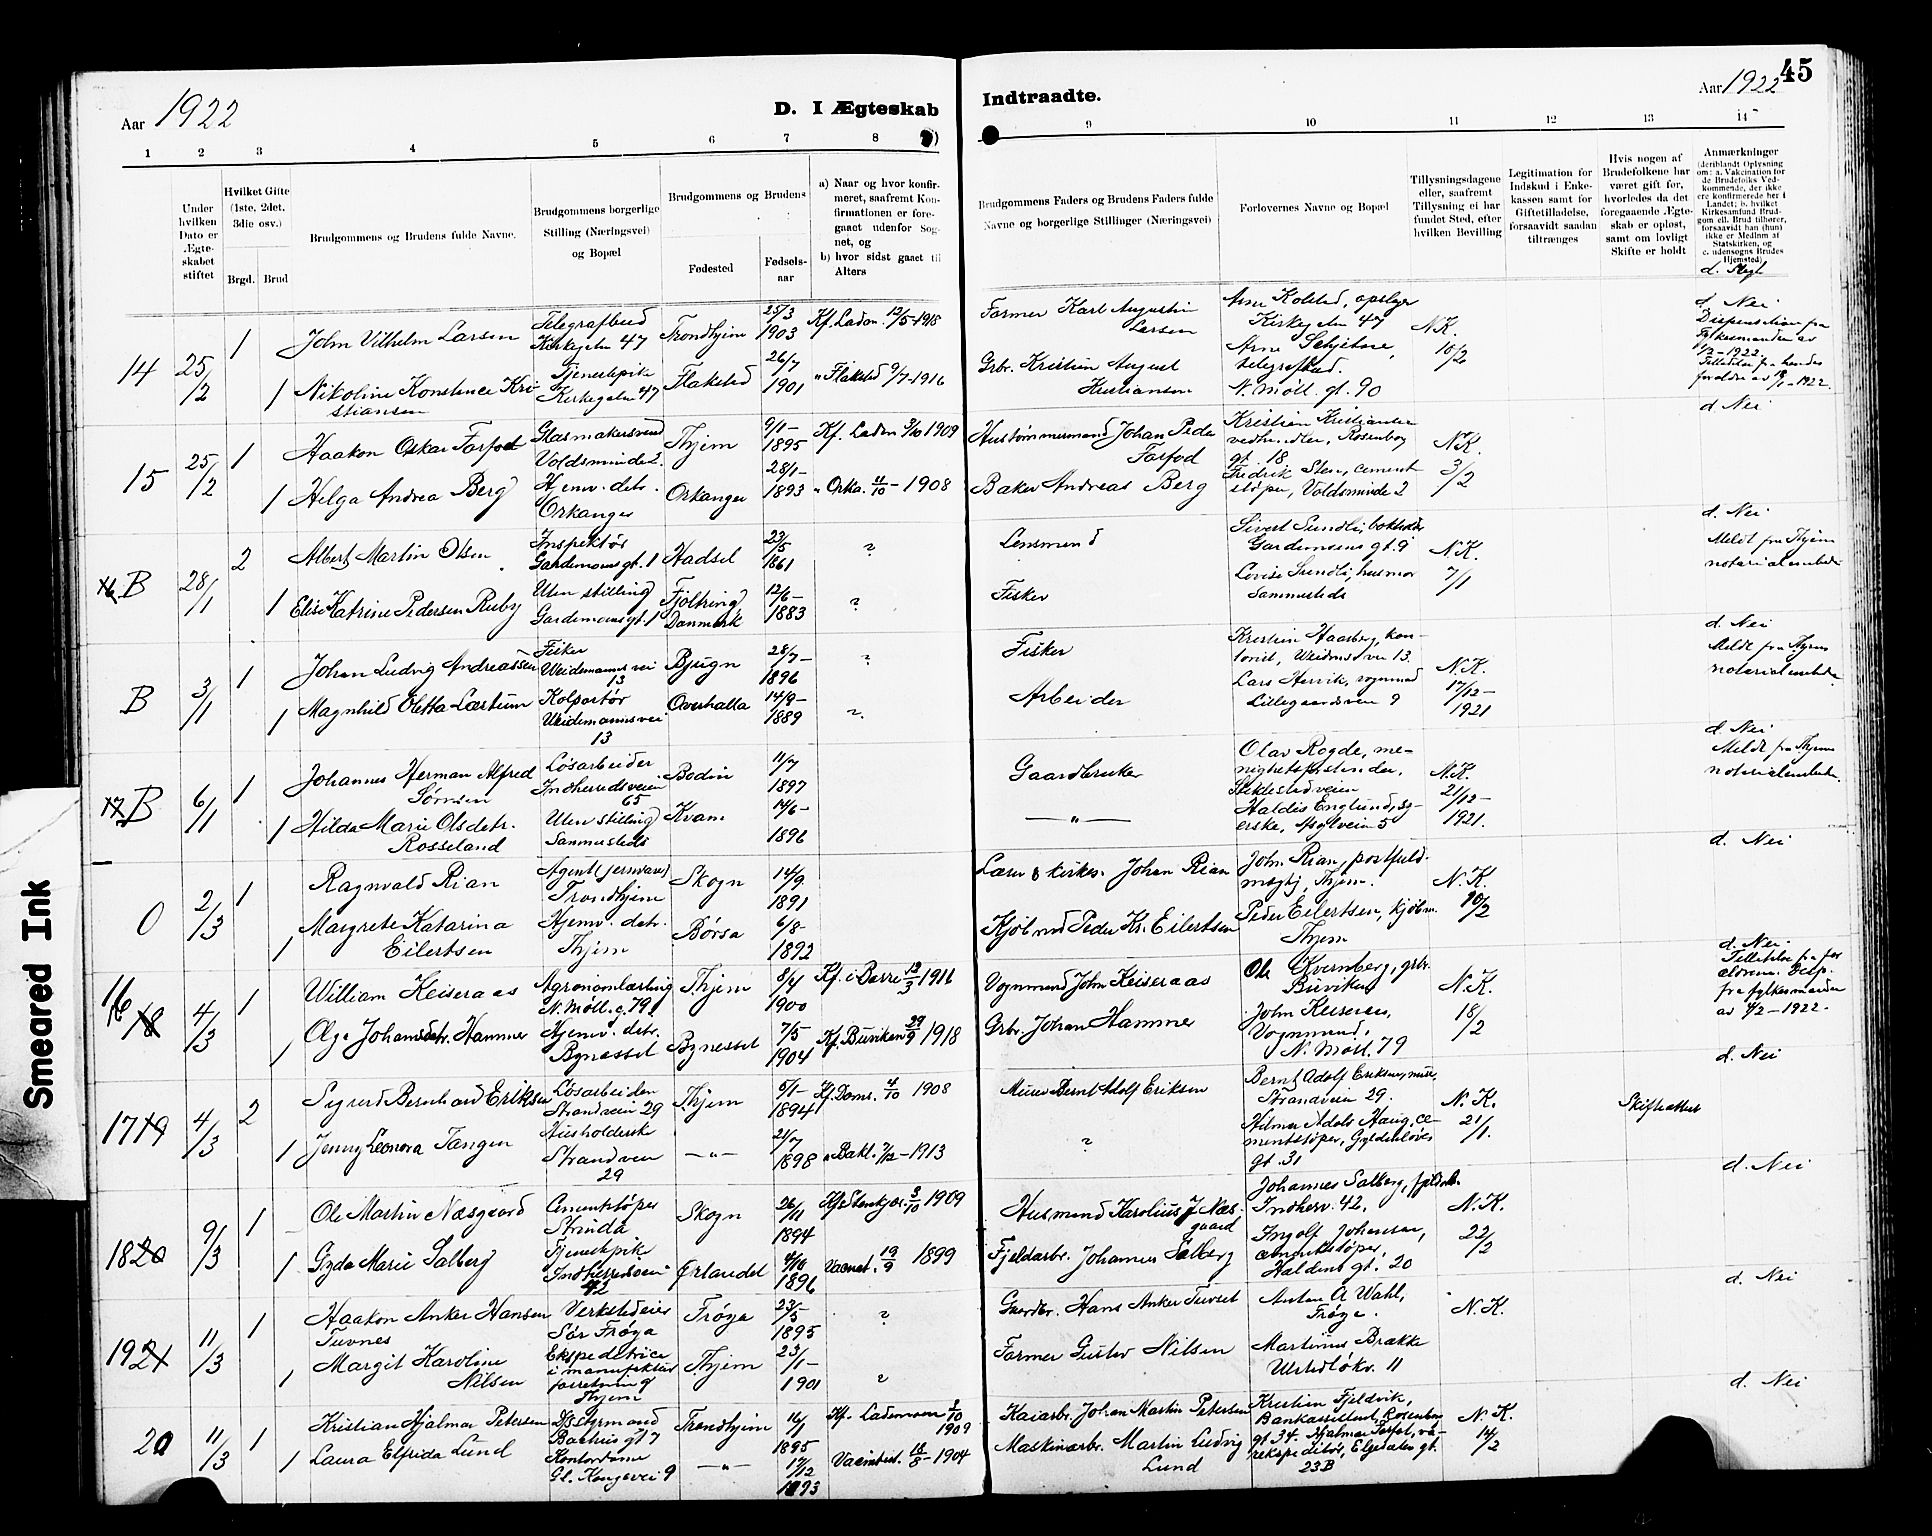 45
Aar 1922
D. I Ægteskab
Indtraadte.
Aar 1922
1 2 3 4 5 6 7 8 9 10 11 12 13 14
Under hvilken Dato er Ægteskabet stiftet
Hvilket Gifte (1ste, 2det, 3die osv.)
Brgd. Brud
Brudgommens og Brudens fulde Navne.
Brudgommens borgerlige Stilling (Næringsvei) og Bopæl
Brudgommens og Brudens
Fødested
Fødselsaar
a) Naar og hvor konfirmeret, saafremt Konfirmationen er foregaaet udenfor Sognet, og
b) hvor sidst gaaet til Alters
Brudgommens Faders og Brudens Faders fulde Navne og borgerlige Stillinger (Næringsvei)
Forlovernes Navne og Bopæl
Tillysningsdagene eller, saafremt Tillysning ei har fundet Sted, efter hvilken Bevilling
Legitimation for Indskud i Enkekassen samt for Giftetilladelse, forsaavidt saadan tiltrænges
Hvis nogen af Brudefolkene har været gift før, hvorledes da det foregaaende Ægteskab er opløst, samt om lovligt Skifte er holdt
Anmærkninger
(deriblandt Oplysning om: a. Vakcination for de Brudefolks Vedkommende, der ikke ere konfirmerede her i Landet; b. hvilket Kirkesamfund Brudgom ell. Brud tilhører, forsaavidt han (hun) ikke er Medlem af Statskirken, og c. udensogns Brudes Hjemsted)
d. Slegt
14 25/2
1 John Vilhelm Larsen
Telegrafbud Kirkegaten 47
Trondhjem
25/3 1903
Kf. Ladem. 12/5-1918
Farmer Karl Augustin Larsen
Arne Kolstad, opsyn
Kirkegaten 47
N.K.
10/2
d. Nei
Dispensation fra
1 Nikoline Konstance Kristiansen
Tjenestepike Kirkegaten 47
Flakstad
26/7 1901
" Flakstad 9/7-1916
Grbr. Kristian August Kristiansen
N. Møll. gt. 90
15 25/2
1 Haakon Oskar Forfod
Glasmakersvend Voldsminde 2.
Thjem
9/1- 1895
Kf. Ladem 9/10 1909
Hustømmermand Johan Peder Forfod
Kristian Kristiansen
vedhandler, Rosenborg gt 18
N.K.
3/2
d. Nei
1 Helga Andrea Berg
Hjemv. datr. Orkanger
Orkanger
28/1- 1893
" Orka. 11/10 - 1908
Baker Andreas Berg
Fredrik Sten, cementstøper, Voldsminde 2
16 B 28/1
2 Albert Martin Olsen
Inspektør Gardemoensgt. 1
Hadsel
23/5 1861
?
Lensmand
Sivert Sundli, bokholder
Gardemoens gt. 9
N.K.
7/1
d. Nei
Meldt fra Thjem notarialembede
1 Elise Katrine Pedersen Ruby
Uten stilling Gardemoensgt. 1
Fjoltring Danmark
12/6- 1883
?
Fisker
Lovise Sundli, husmor
Sammesteds
B 3/1
1 Johan Ludvig Andreassen
Fisker Weidemannsvei 13
Bjugn
28/7- 1896
?
Fisker
Kristian Haarberg, kontorist, Weidemsvei 13.
N.K.
17/12- 1921
d. Nei
Meldt fra Thjem notarialembede
1 Magnhild Oletta Lærtum
Kolportør Weidemannsvei 13
Overhalla
14/9- 1889
?
Arbeider
Lars Stervik, vognmand
Lillegaardsveien 9
17 B 6/1
1 Johannes Herman Alfred Sørnsen
Løsarbeider Indherredsveien 65
Bodin
11/7 1897
Gaardbruker
Olav Rogde, menighetsforstander,
Stiklestadveien
N.K.
21/12- 1921.
d. Nei
Meldt fra Thjem notarialembede
1 Hilda Marie Olsdatr. Rosseland
Uten stilling Sammesteds
Kvam
14/6- 1896
— " —
Haldis Englund, syerske, Asylveien 5
0 2/3
1 Ragnvald Rian
Agent (jernvarer) Trondhjem
Skogn
14/9 1891
Lærer & kirkes. Johan Rian
John Rian, postfuldmægtig, Thjem.
N.K.
10/2
d. Nei
1 Margrete Katarina Eilertsen
Hjemv. datr. Thjem
Børsa
6/8- 1892
Kjøbmd Peder Kr. Eilertsen
Peder Eilertsen, kjøbm. Thjem
16 18 4/3
1 William Keiseraas
Agronomlærling N. Møll. g. 79
Thjem
8/4 1900
Kf. i Børre 12/3 1916
Vognmand John Keiseraas
Ole Kvernberg, grbr. Buviken
N.K.
18/2
d. Nei.
Tilladelse fra forældrene. Disp. fra fylkesmanden av 4/2-1922.
1 Olga Johansdatr. Hammer
Hjemv. datr. Bynesset
Bynesset
7/5 1904
Kf. Buviken 29/9 1918
Grbr. Johan Hammer
John Keiseraas, Vognmand, N. Møll. 79
17 19 4/3
2 Sigurd Bernhard Eriksen
Løsarbeider Strandveien 29
Thjem
5/1- 1894
Kf. Doms. 4/10 1908
Murer Bernt Adolf Eriksen
Bernt Adolf Eriksen, murer, Strandveien 29.
N.K.
21/1.
Skifteattest
d. Nei
1 Jenny Leonora Tangen
Husholderske Strandveien 29
— " —
21/7 1898
" Bakl. 7/12-1913
?
Hilmar Adols Haug, cementstøper, Gyldenløves gt. 31
18 20 9/3
1 Ole Martin Næsgaard
Cementstøper Strinda
Skogn
26/11 1894
Kf. Stenkjær. 3/10 1909
Husmand Karolius J. Næsgaard
Johannes Salberg, fjeldarb.
Indherv. 42.
N.K.
22/2
d. Nei
1 Gyda Marie Salberg
Tjenestepike Indherredsvei 42
Ørlandet
4/10 1896
19/9 1899
Fjeldarbr. Johannes Salberg
Ingolf Johansen, cementstøper, Haldens gt. 20
19 21 11/3
1 Haakon Anker Hansen Tuvnes
Verkstedeier Sør Frøya
Frøya
23/5 1895
?
Gaardbr. Hans Anker Tuvset
Anton A Wahl, Frøya.
N.K.
d. Nei
1 Margit Karoline Nilsen
Ekspeditrice i manufakturforretning Thjem
Thjem
23/1- 1901
?
Farmer Gustav Nilsen
Martinus Brække
11
20 11/3
1 Kristian Hjalmar Petersen
Bakhus gt 7
Trondhjem
16/1 1895
Kf. Lademoen 3/10 1909
Kaiarbr. Johan Martin Petersen
Kristian Fjeldvik, Bankassistent, Rosenborg gt. 34.
N.K.
14/2
d. Nei
1 Laura Elfrida Lund
Kontordame Gl. Kongevei 9
— " —
17/12 1893
Maskinarbr. Martin Ludvig Lund
Elgesater gt. 23B
Smeared Ink